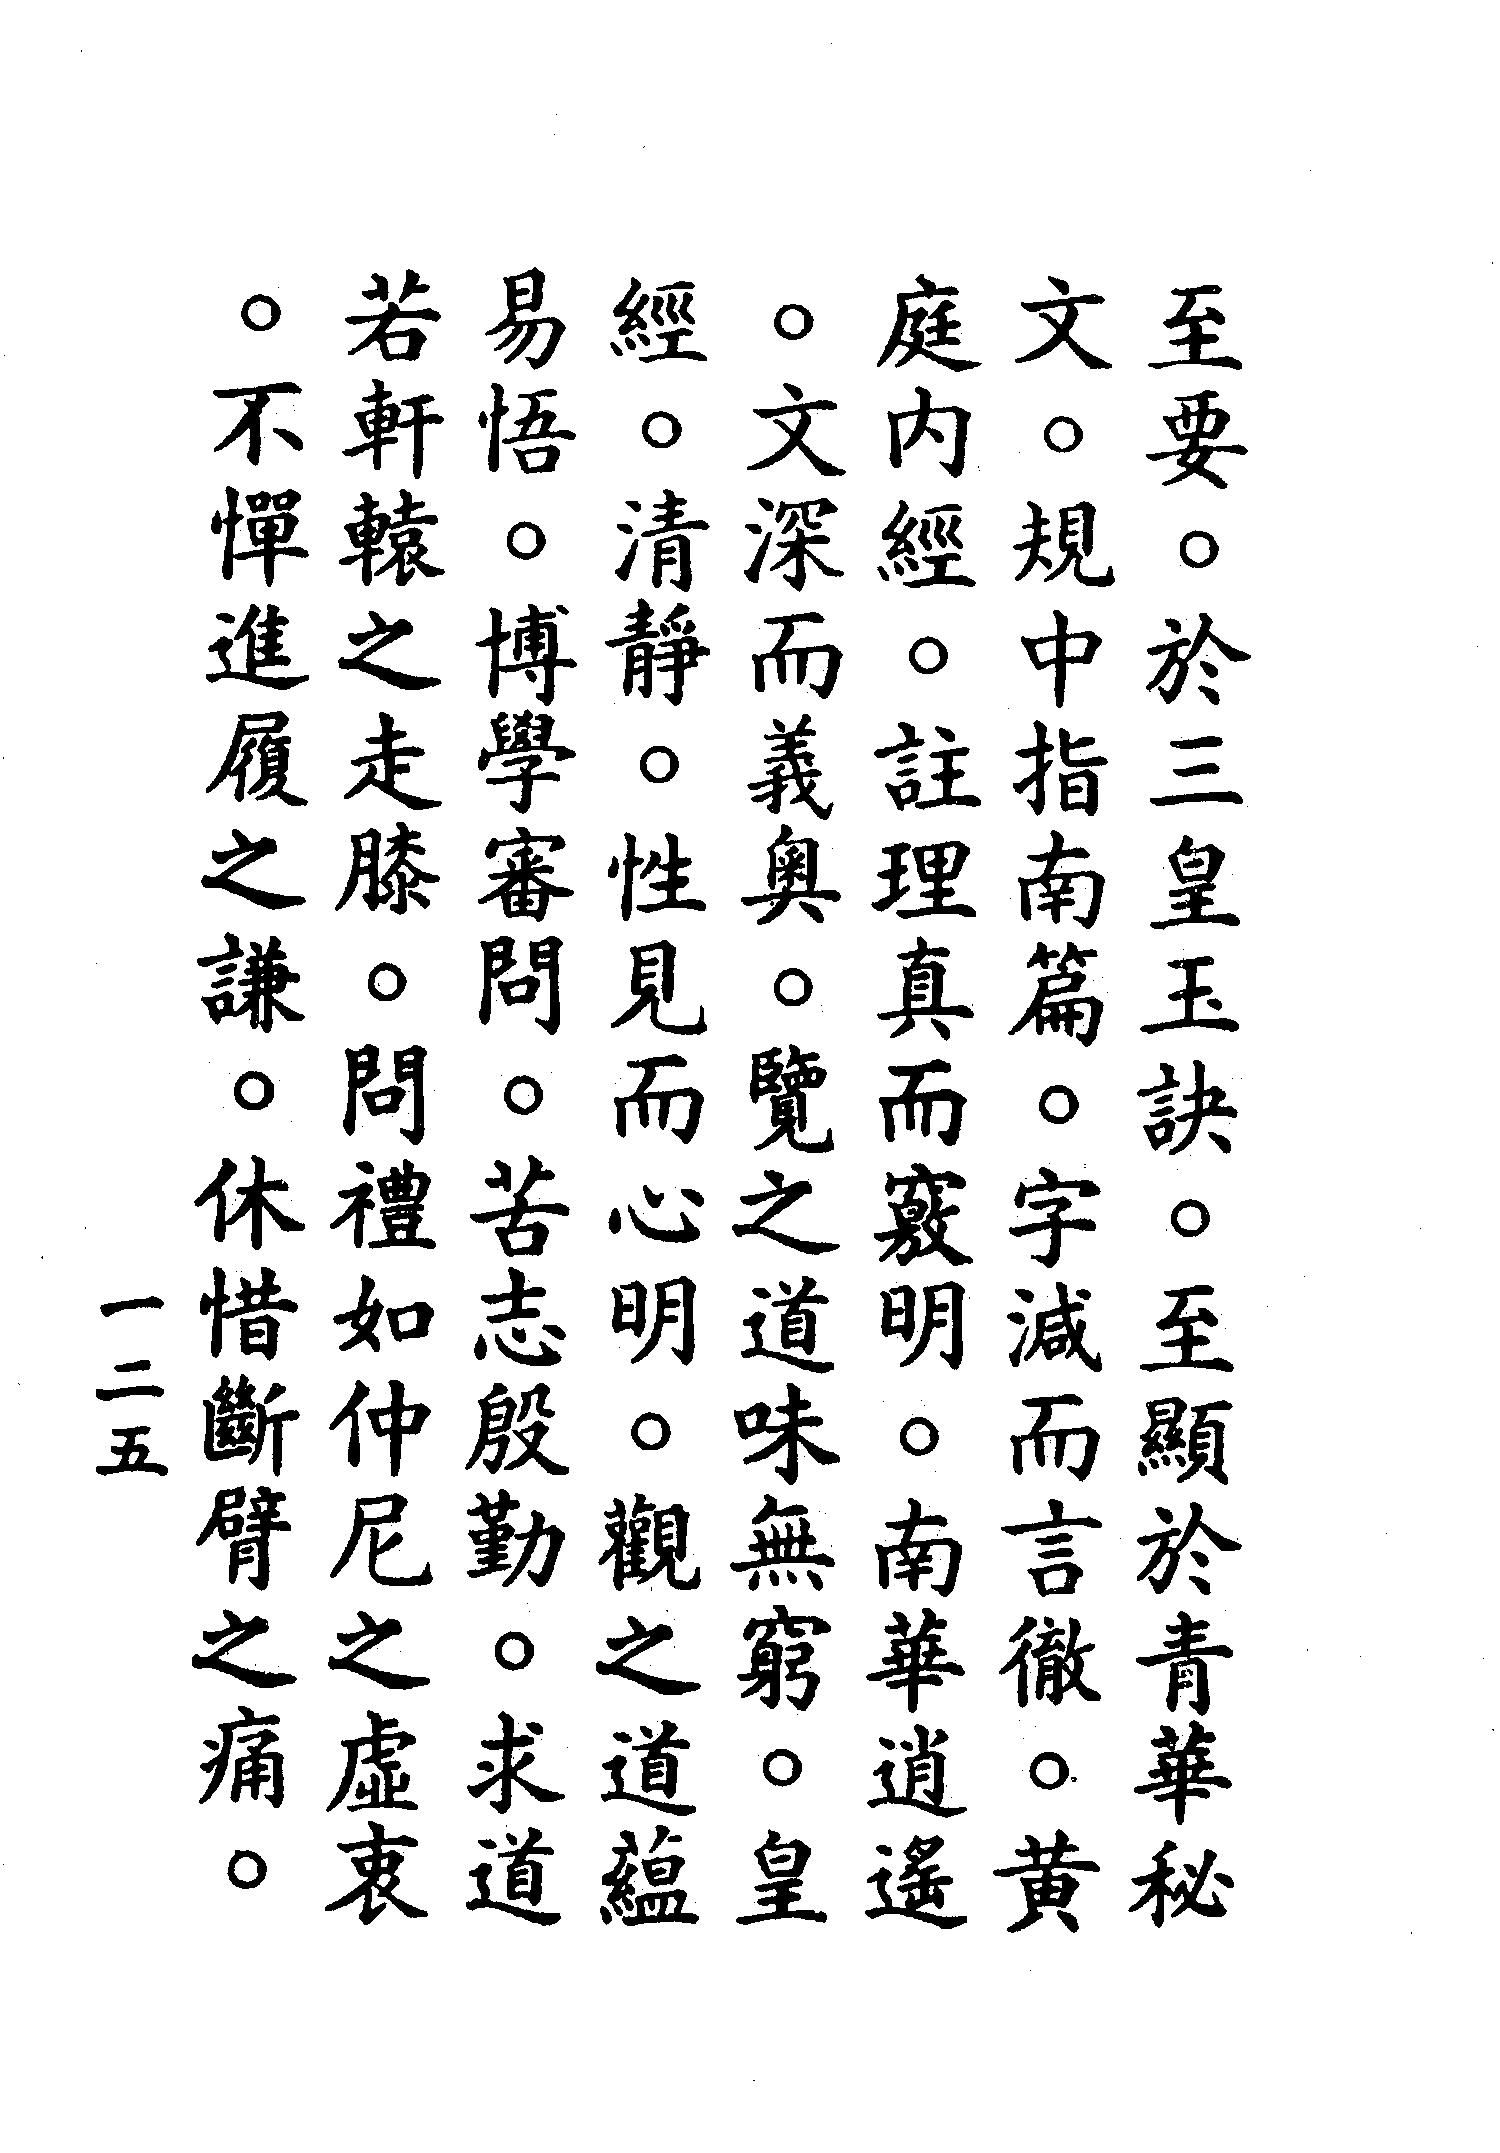 至要。於三皇玉訣。至顯於青華秘
文。規中指南篇。字減而言徹。黃
庭内經。註理真而竅明。南華逍遙
。文深而義奧。覽之道味無窮。皇
經。清靜。性見而心明。觀之道蘊
易悟。博學審問。苦志殷勤。求道
若軒轅之走膝。問禮如仲尼之虛衷
。不憚進履之謙。休惜斷臂之痛。
一二五